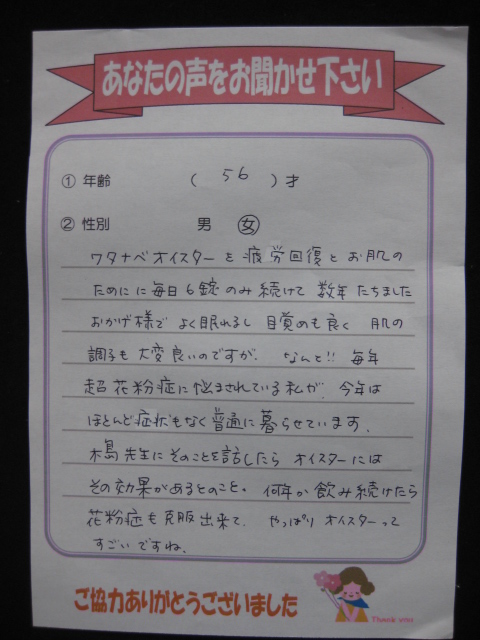 あなたの声をお聞かせ下さい
① 年齢 ( 56 ) 才
② 性別 男 女
ワタナベオイスターを疲労回復とお肌の
ために毎日6錠のみ続けて 数年たちました
おかげ様で よく眠れるし 目覚めも良く 肌の
調子も大変良いのですが、なんと!! 毎年
超花粉症に悩まされている私が、今年は
ほとんど症状もなく普通に暮らせています、
木島先生にそのことを話したら オイスターには
その効果があるとのこと。何年か飲み続けたら
花粉症も克服出来て、やっぱりオイスターって
すごいですね、
ご協力ありがとうございました
Thank you